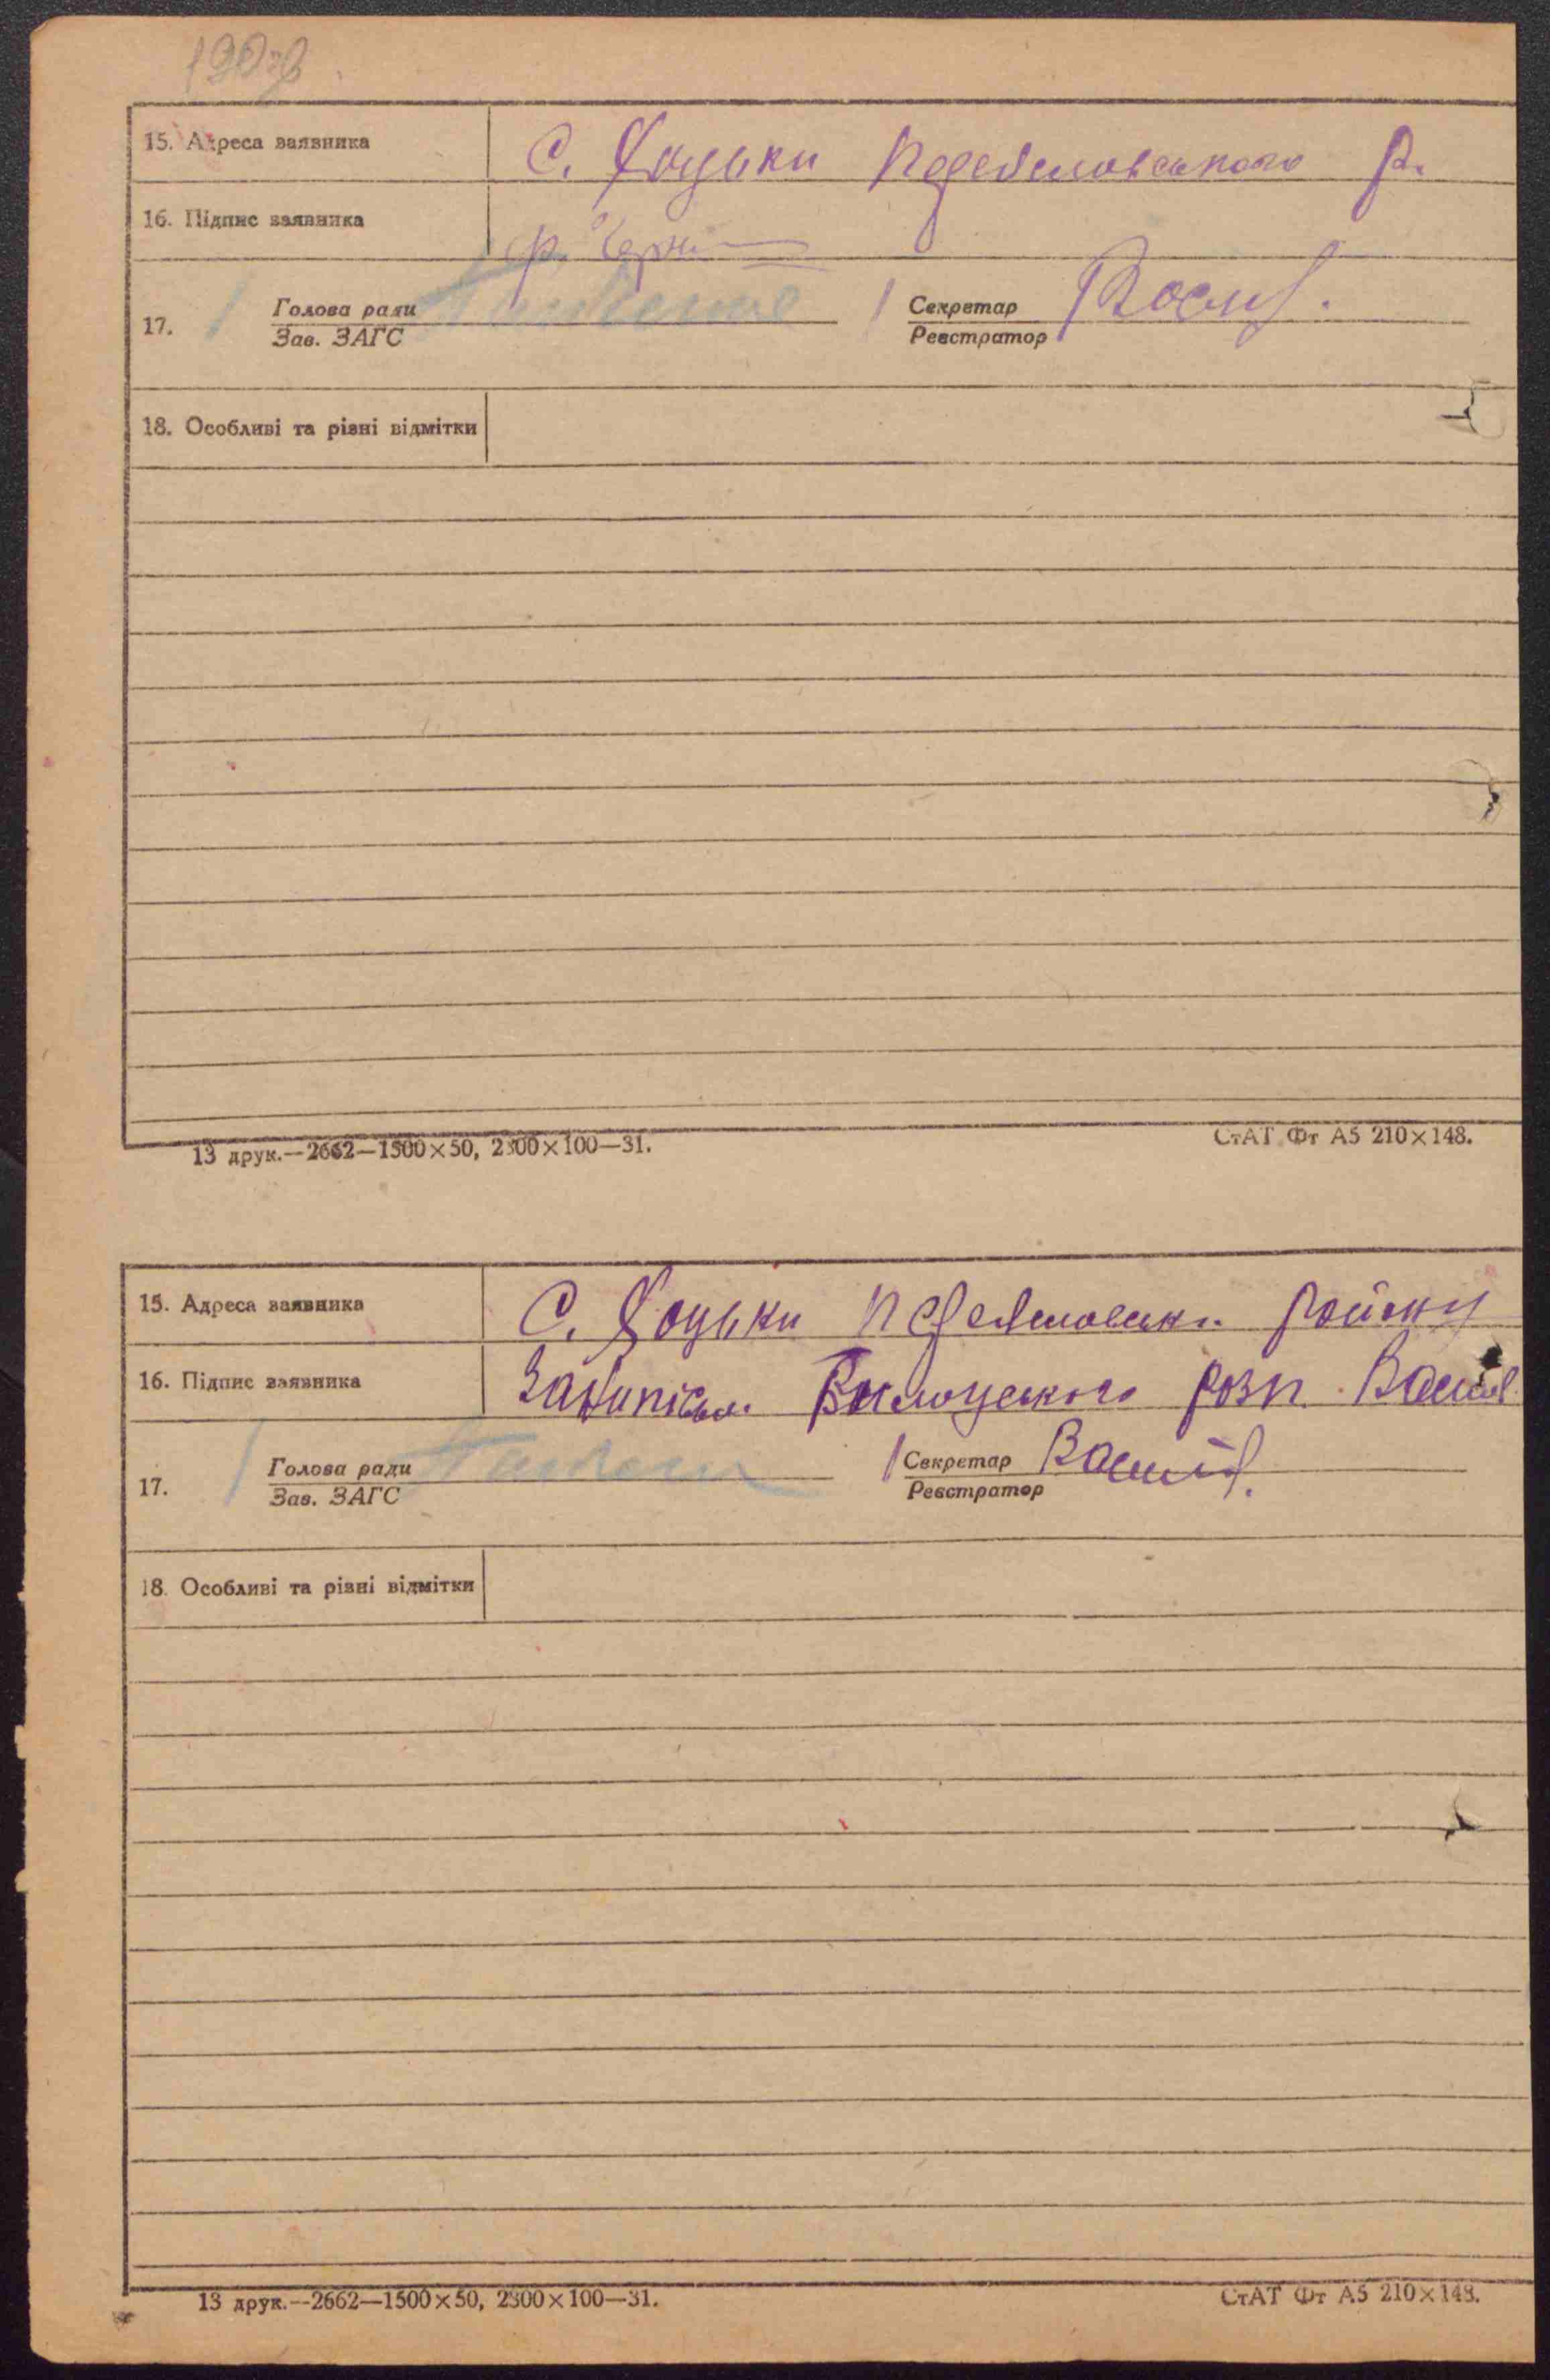 190зв
15. Адреса заявника С. Хоцьки Переяславського р.
16. Підпис заявника
17. Голова ради Секретар
Зав. ЗАГС Реєстратор
18. Особливі та різні відмітки
13 друк.—2662—1500×50, 2300×100—31. СтАТ Фт А5 210×148.
15. Адреса заявника С. Хоцьки Переяславськ. району
16. Підпис заявника розп.
17. Голова ради Секретар
Зав. ЗАГС Реєстратор
18. Особливі та різні відмітки
13 друк.—2662—1500×50, 2300×100—31. СтАТ Фт А5 210×148.